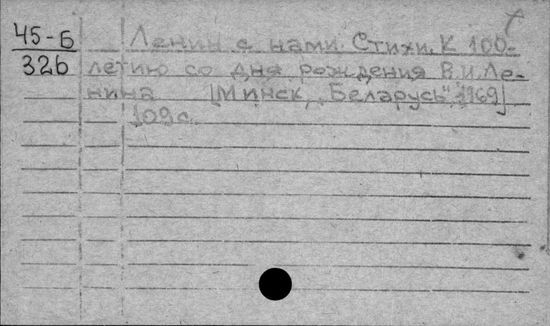 45-Б
326
Ленин с нами. Стихи. К 100-
летию со дня рождения В.И.Ле-
нина [Минск, "Беларусь" 1969]
109с.